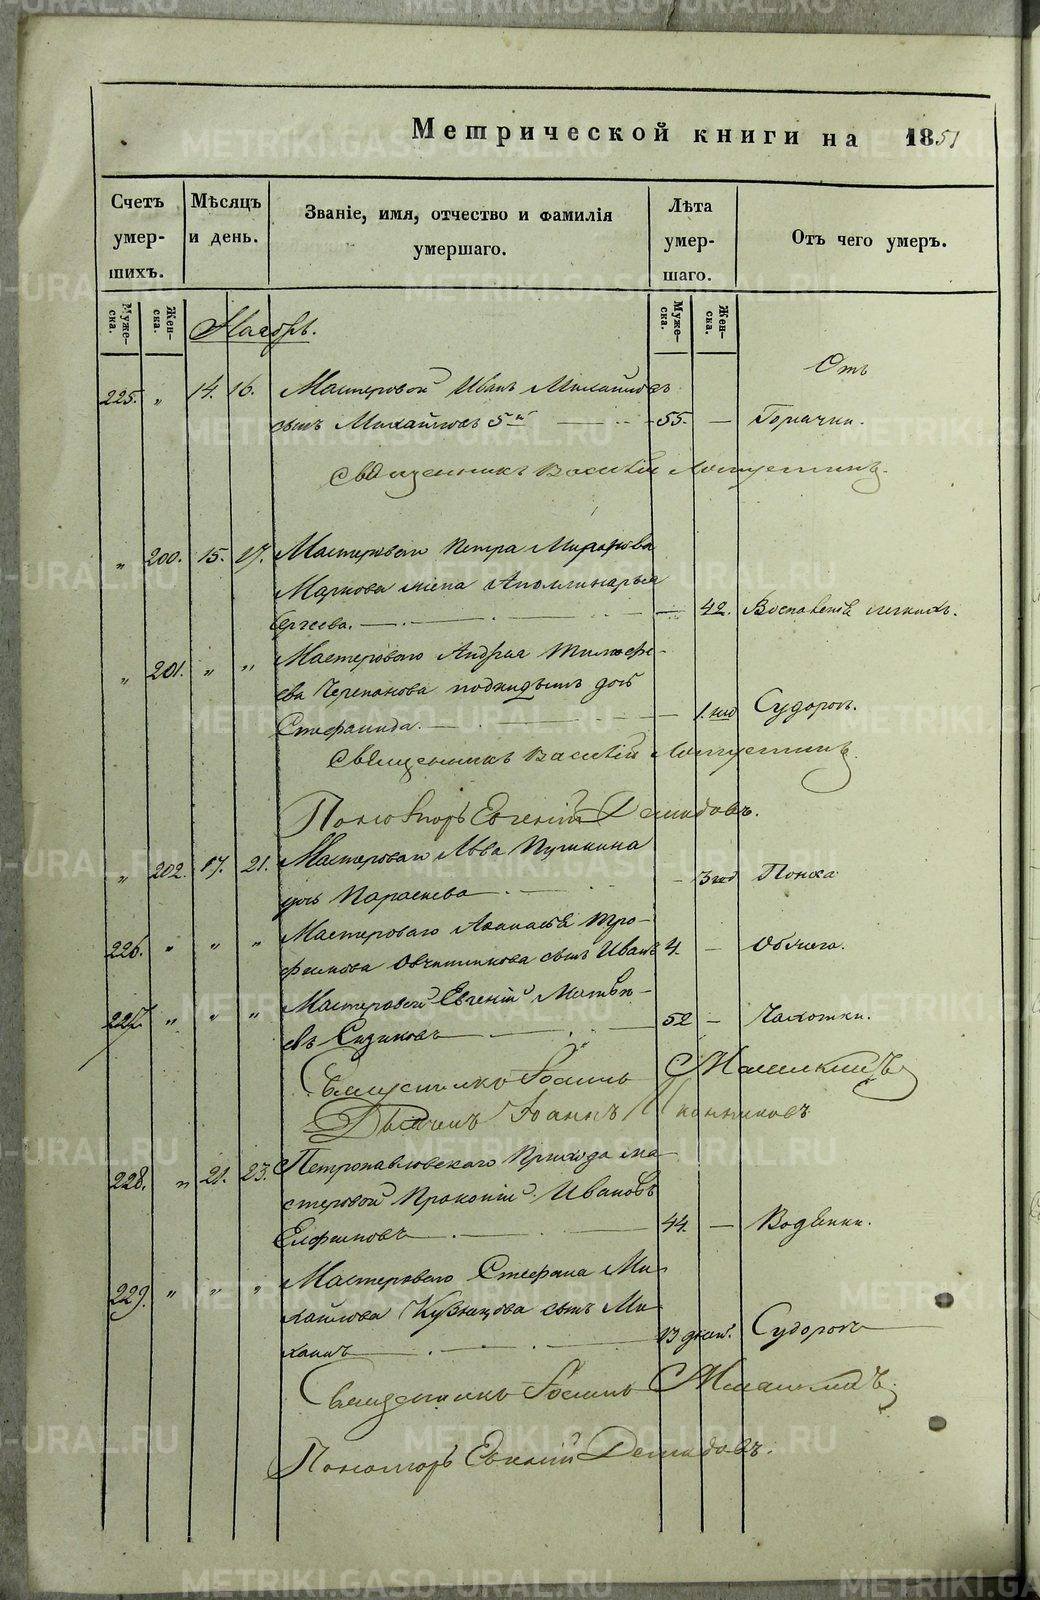 Метрической книги на 1851
Счетъ умер-шихъ.
Мѣсяцъ и день.
Званіе, имя, отчество и фамилія умершаго.
Лѣта умер-шаго.
Отъ чего умеръ.
Муже-ска.
Жен-ска.
Муже-ска.
Жен-ска.
Ноябрь.
Отъ
225. " 14. 16. Мастеровой Иванъ Михайловъ
сынъ Михайловъ 5й 55. — Горячки.
Священникъ Василій
" 200. 15. 17. Мастероваго Петра Миронова
Маркова жена Аполлинарья
Сергѣева. — 42. Воспаленія легкихъ.
" 201. " " Мастероваго Андрея Тимофе-
ева Черепанова подкидышъ дочь
Стефанида. — 1. Судорогъ.
Священникъ Василій
Пономарь Евгеній Демидовъ.
" 202. 17. 21. Мастероваго Льва Пушкина
дочь Параскева — 3 год Поноса
226. " " " Мастероваго Аѳанасія Тро-
фимова Овчинникова сынъ Иванъ 4. —
227. " " " Мастеровой Евгеній Матвѣ-
евъ 52 — Чахотки.
Священникъ Іоаннъ
Дьяконъ Іоаннъ Иконниковъ
228. " 21. 23. Петропавловскаго Прихода ма-
стеровой Прокопій Ивановъ
Елфимовъ — 44. — Водянки.
229. " " " Мастероваго Стефана Ми-
хайлова Кузнецова сынъ Ми-
хаилъ — 13 дней. Судорогъ
Священникъ Іоаннъ
Пономарь Евгеній Демидовъ.
METRIKI.GASO-URAL.RU